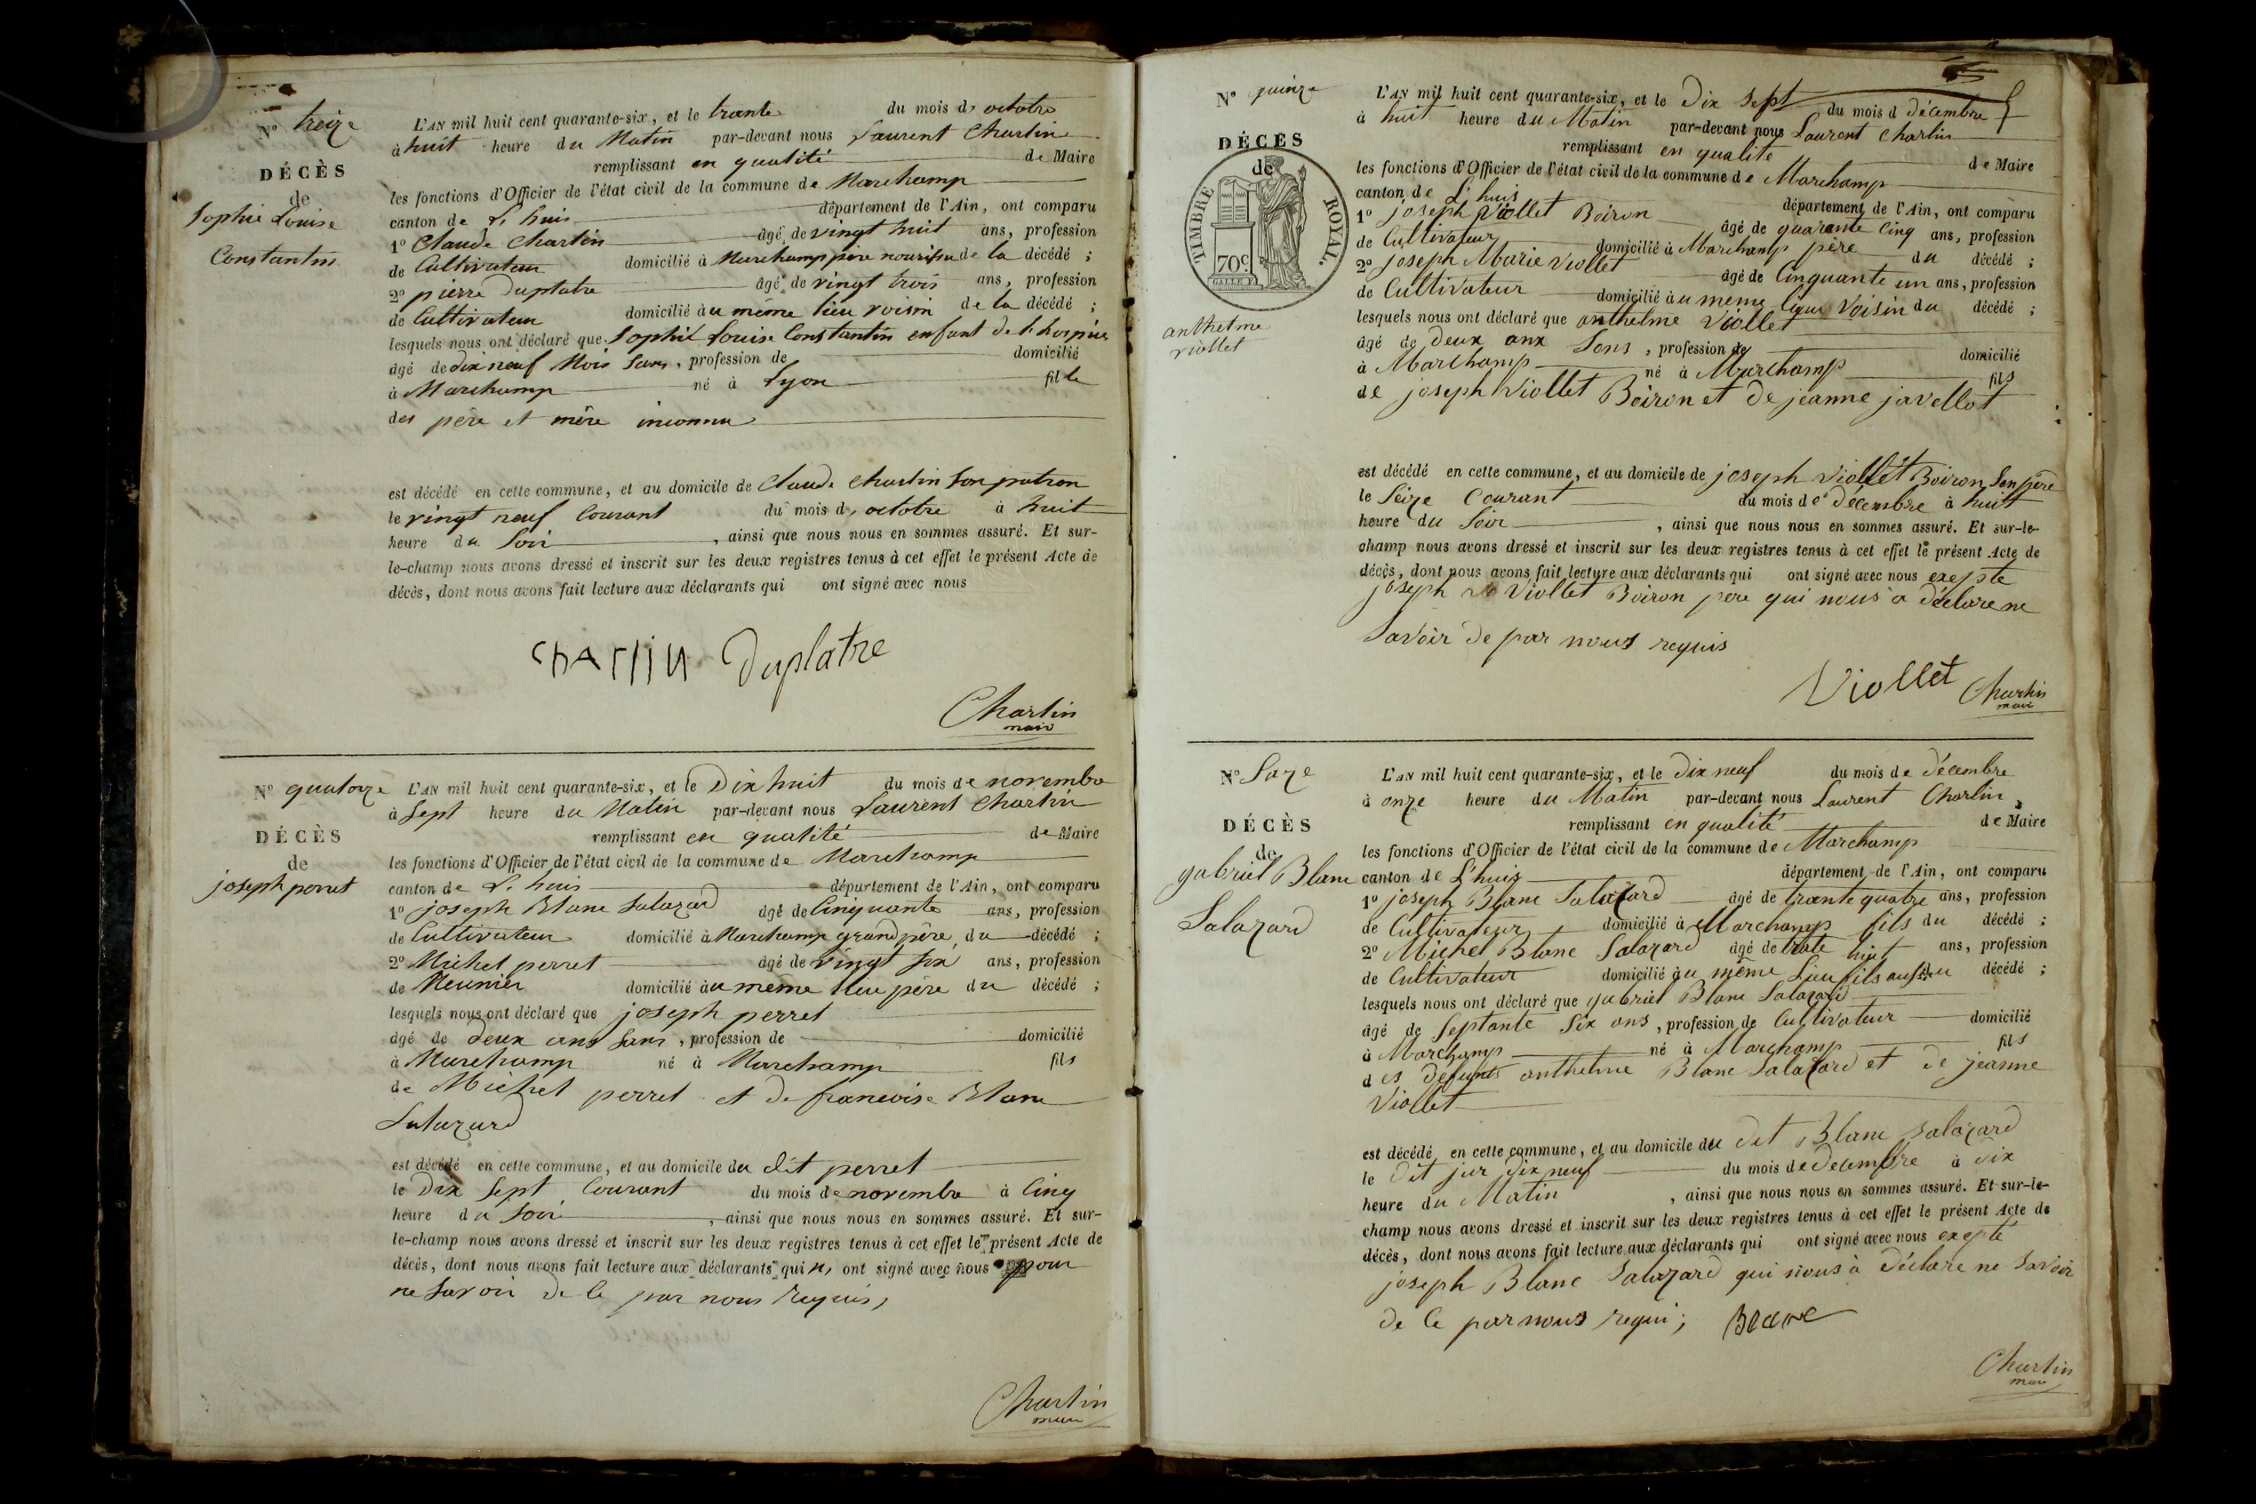 N° treize
DÉCÈS
de
Sophie Louise
Constantin
L'AN mil huit cent quarante-six, et le trante du mois d'octobre
à huit heure du Matin par-devant nous Laurent Charlin
remplissant en qualité de Maire
les fonctions d'Officier de l'état civil de la commune de Marchamp
canton de L'huis département de l'Ain, ont comparu
1° Claude Charlin âgé de vingt huit ans, profession
de Cultivateur domicilié à Marchamp père nourisu de la décédé ;
2° pierre Duplatre âgé de vingt trois ans, profession
de Cultivateur domicilié àu même lieu voisin de la décédé ;
lesquels nous ont déclaré que Sophie Louise Constantin enfant de l'hospice
âgé de dix neuf Mois sans, profession de domicilié
à Marchamp né à Lyon fille
des père et mère inconnu
est décédé en cette commune, et au domicile de Claude Charlin son patron
le vingt neuf Courant du mois d'octobre à huit
heure du Soir, ainsi que nous nous en sommes assuré. Et sur-
le-champ nous avons dressé et inscrit sur les deux registres tenus à cet effet le présent Acte de
décès, dont nous avons fait lecture aux déclarants qui ont signé avec nous
ChArliN Duplatre
Charlin
maire
N° quatorze
DÉCÈS
de
joseph perret
L'AN mil huit cent quarante-six, et le Dix huit du mois de novembre
à Sept heure du Matin par-devant nous Laurent Charlin
remplissant en qualité de Maire
les fonctions d'Officier de l'état civil de la commune de Marchamp
canton de L'huis département de l'Ain, ont comparu
1° joseph Blanc Salazard âgé de Cinquante ans, profession
de Cultivateur domicilié à Marchamp grand père du décédé ;
2° Michel perret âgé de vingt six ans, profession
de Meunier domicilié àu même lieu père du décédé ;
lesquels nous ont déclaré que joseph perret
âgé de Deux ans sans, profession de domicilié
à Marchamp né à Marchamp fils
de Michel perret et de francoise Blanc
Salazard
est décédé en cette commune, et au domicile du dit perret
le Dix Sept Courant du mois de novembre à Cinq
heure du Soir, ainsi que nous nous en sommes assuré. Et sur-
le-champ nous avons dressé et inscrit sur les deux registres tenus à cet effet le présent Acte de
décès, dont nous avons fait lecture aux déclarants qui n, ont signé avec nous pour
ne Savoir de Ce par nous requis,
Charlin
maire
N° quinze
DÉCÈS
de
TIMBRE ROYAL.
70c
anthelme
viollet
L'AN mil huit cent quarante-six, et le Dix Sept du mois d Décembre
à huit heure du Matin par-devant nous Laurent Charlin
remplissant en qualité de Maire
les fonctions d'Officier de l'état civil de la commune de Marchamp
canton de L'huis département de l'Ain, ont comparu
1° joseph Viollet Boiron âgé de quarante Cinq ans, profession
de Cultivateur domicilié à Marchamp père du décédé ;
2° joseph Marie Viollet âgé de Cinquante un ans, profession
de Cultivateur domicilié àu meme lieu Voisin du décédé ;
lesquels nous ont déclaré que anthelme Viollet
âgé de Deux anx Sans, profession de domicilié
à Marchamp né à Marchamp fils
de joseph Viollet Boiron et De jeanne javellot
est décédé en cette commune, et au domicile de joseph Viollet Boiron Son père
le Seize Courant du mois de Décembre à huit
heure du Soir, ainsi que nous nous en sommes assuré. Et sur-le-
champ nous avons dressé et inscrit sur les deux registres tenus à cet effet le présent Acte de
décès, dont nous avons fait lecture aux déclarants qui ont signé avec nous exepte
joseph Viollet Boiron père qui nous a Déclare ne
Savoir De par nous requis
Viollet Charlin
maire
N° Saze
DÉCÈS
de
gabriel Blanc
Salazard
L'AN mil huit cent quarante-six, et le Dix neuf du mois de Décembre
à onze heure du Matin par-devant nous Laurent Charlin,
remplissant en qualité de Maire
les fonctions d'Officier de l'état civil de la commune de Marchamp
canton de L'huis département de l'Ain, ont comparu
1° joseph Blanc Salazard âgé de trante quatre ans, profession
de Cultivateur domicilié à Marchamp fils du décédé ;
2° Michel Blanc Salazard âgé de trate huit ans, profession
de Cultivateur domicilié àu même Lieu fils aussi du décédé ;
lesquels nous ont déclaré que gabriel Blanc Salazard
âgé de Septante Six ans, profession de Cultivateur domicilié
à Marchamp né à Marchamp fils
des Defunts anthelme Blanc Salazard et de jeanne
Viollet
est décédé en cette commune, et au domicile du Dit Blanc Salazard
le Dit jur Dix neuf du mois de Decembre à Dix
heure du Matin, ainsi que nous nous en sommes assuré. Et sur-le-
champ nous avons dressé et inscrit sur les deux registres tenus à cet effet le présent Acte de
décès, dont nous avons fait lecture aux déclarants qui ont signé avec nous exepte
joseph Blanc Salazard qui nous à Déclare ne Savoir
de Ce par nous requi; Blanc
Charlin
maire